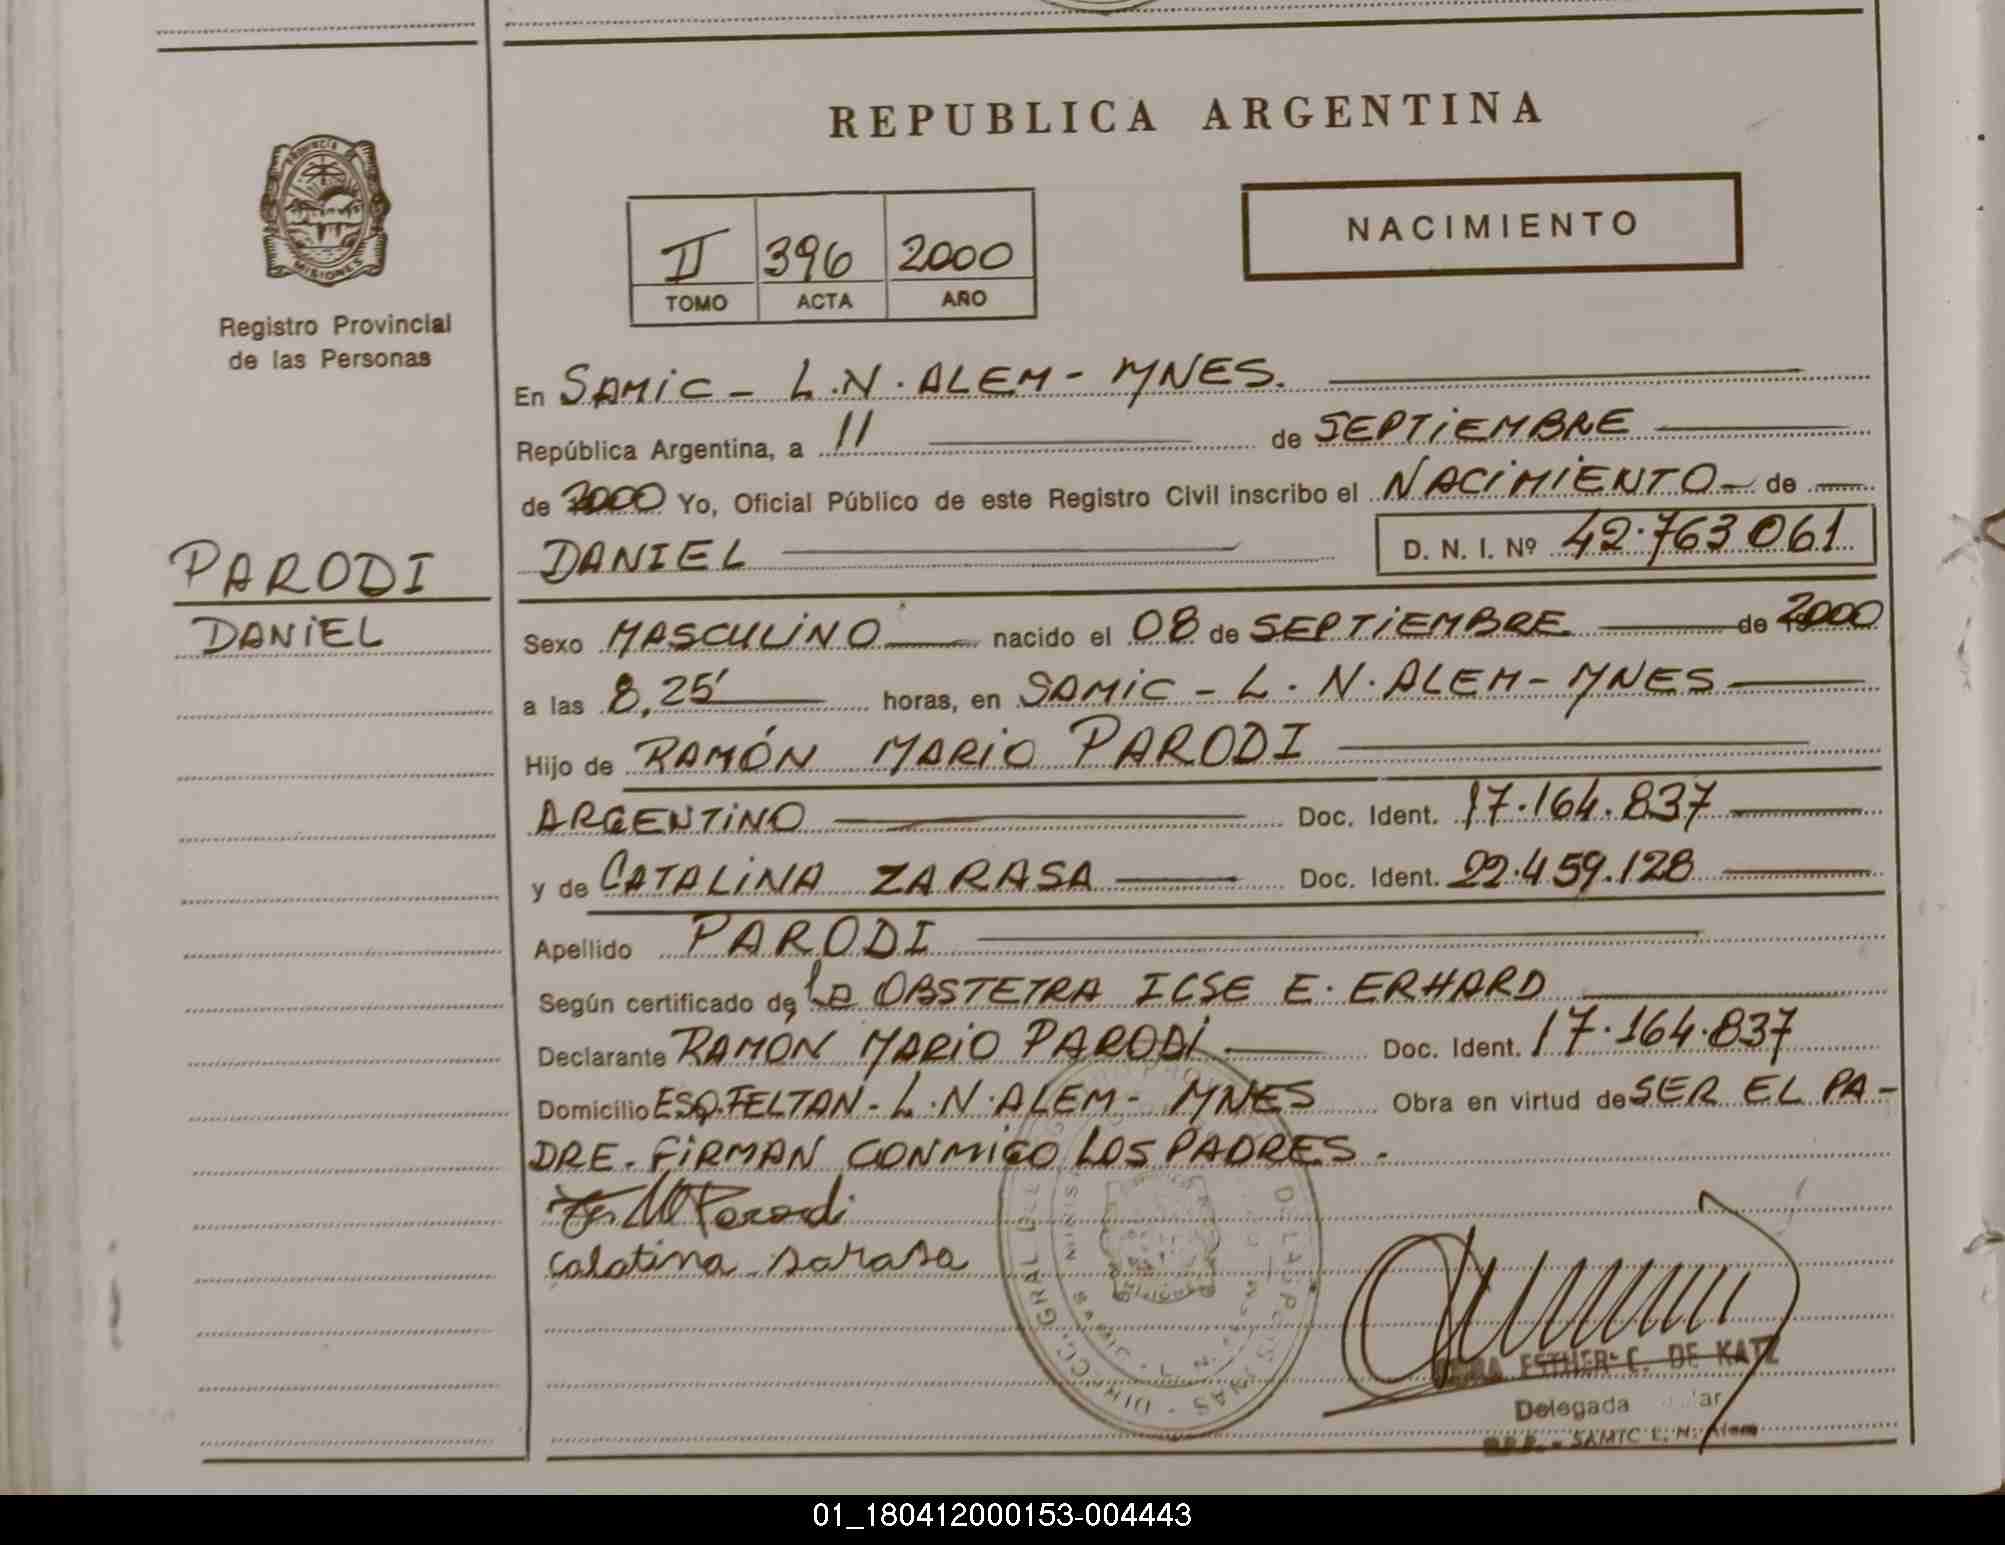 REPUBLICA ARGENTINA
PROVINCIA DE
MISIONES
Registro Provincial
de las Personas
NACIMIENTO
II 396 2000
TOMO ACTA AÑO
En SAMIC - L.N. ALEM - MNES.
República Argentina, a 11 de SEPTIEMBRE
de 2000 Yo, Oficial Público de este Registro Civil inscribo el NACIMIENTO de
DANIEL D. N. I. Nº 42.763061
PARODI
DANIEL
Sexo MASCULINO nacido el 08 de SEPTIEMBRE de 2000
a las 8,25' horas, en SAMIC - L. N. ALEM - MNES
Hijo de RAMÓN MARIO PARODI
ARGENTINO Doc. Ident. 17.164.837
y de CATALINA ZARASA Doc. Ident. 22.459.128
Apellido PARODI
Según certificado de la OBSTETRA ICSE E. ERHARD
Declarante RAMÓN MARIO PARODI Doc. Ident. 17.164.837
Domicilio ESQ. FELTAN - L.N. ALEM - MNES Obra en virtud de SER EL PA-
DRE. FIRMAN CONMIGO LOS PADRES.
Parodi
Calatina sarasa
ESTHER C. DE KATZ
Delegada
SAMIC L. N. Alem
01_180412000153-004443